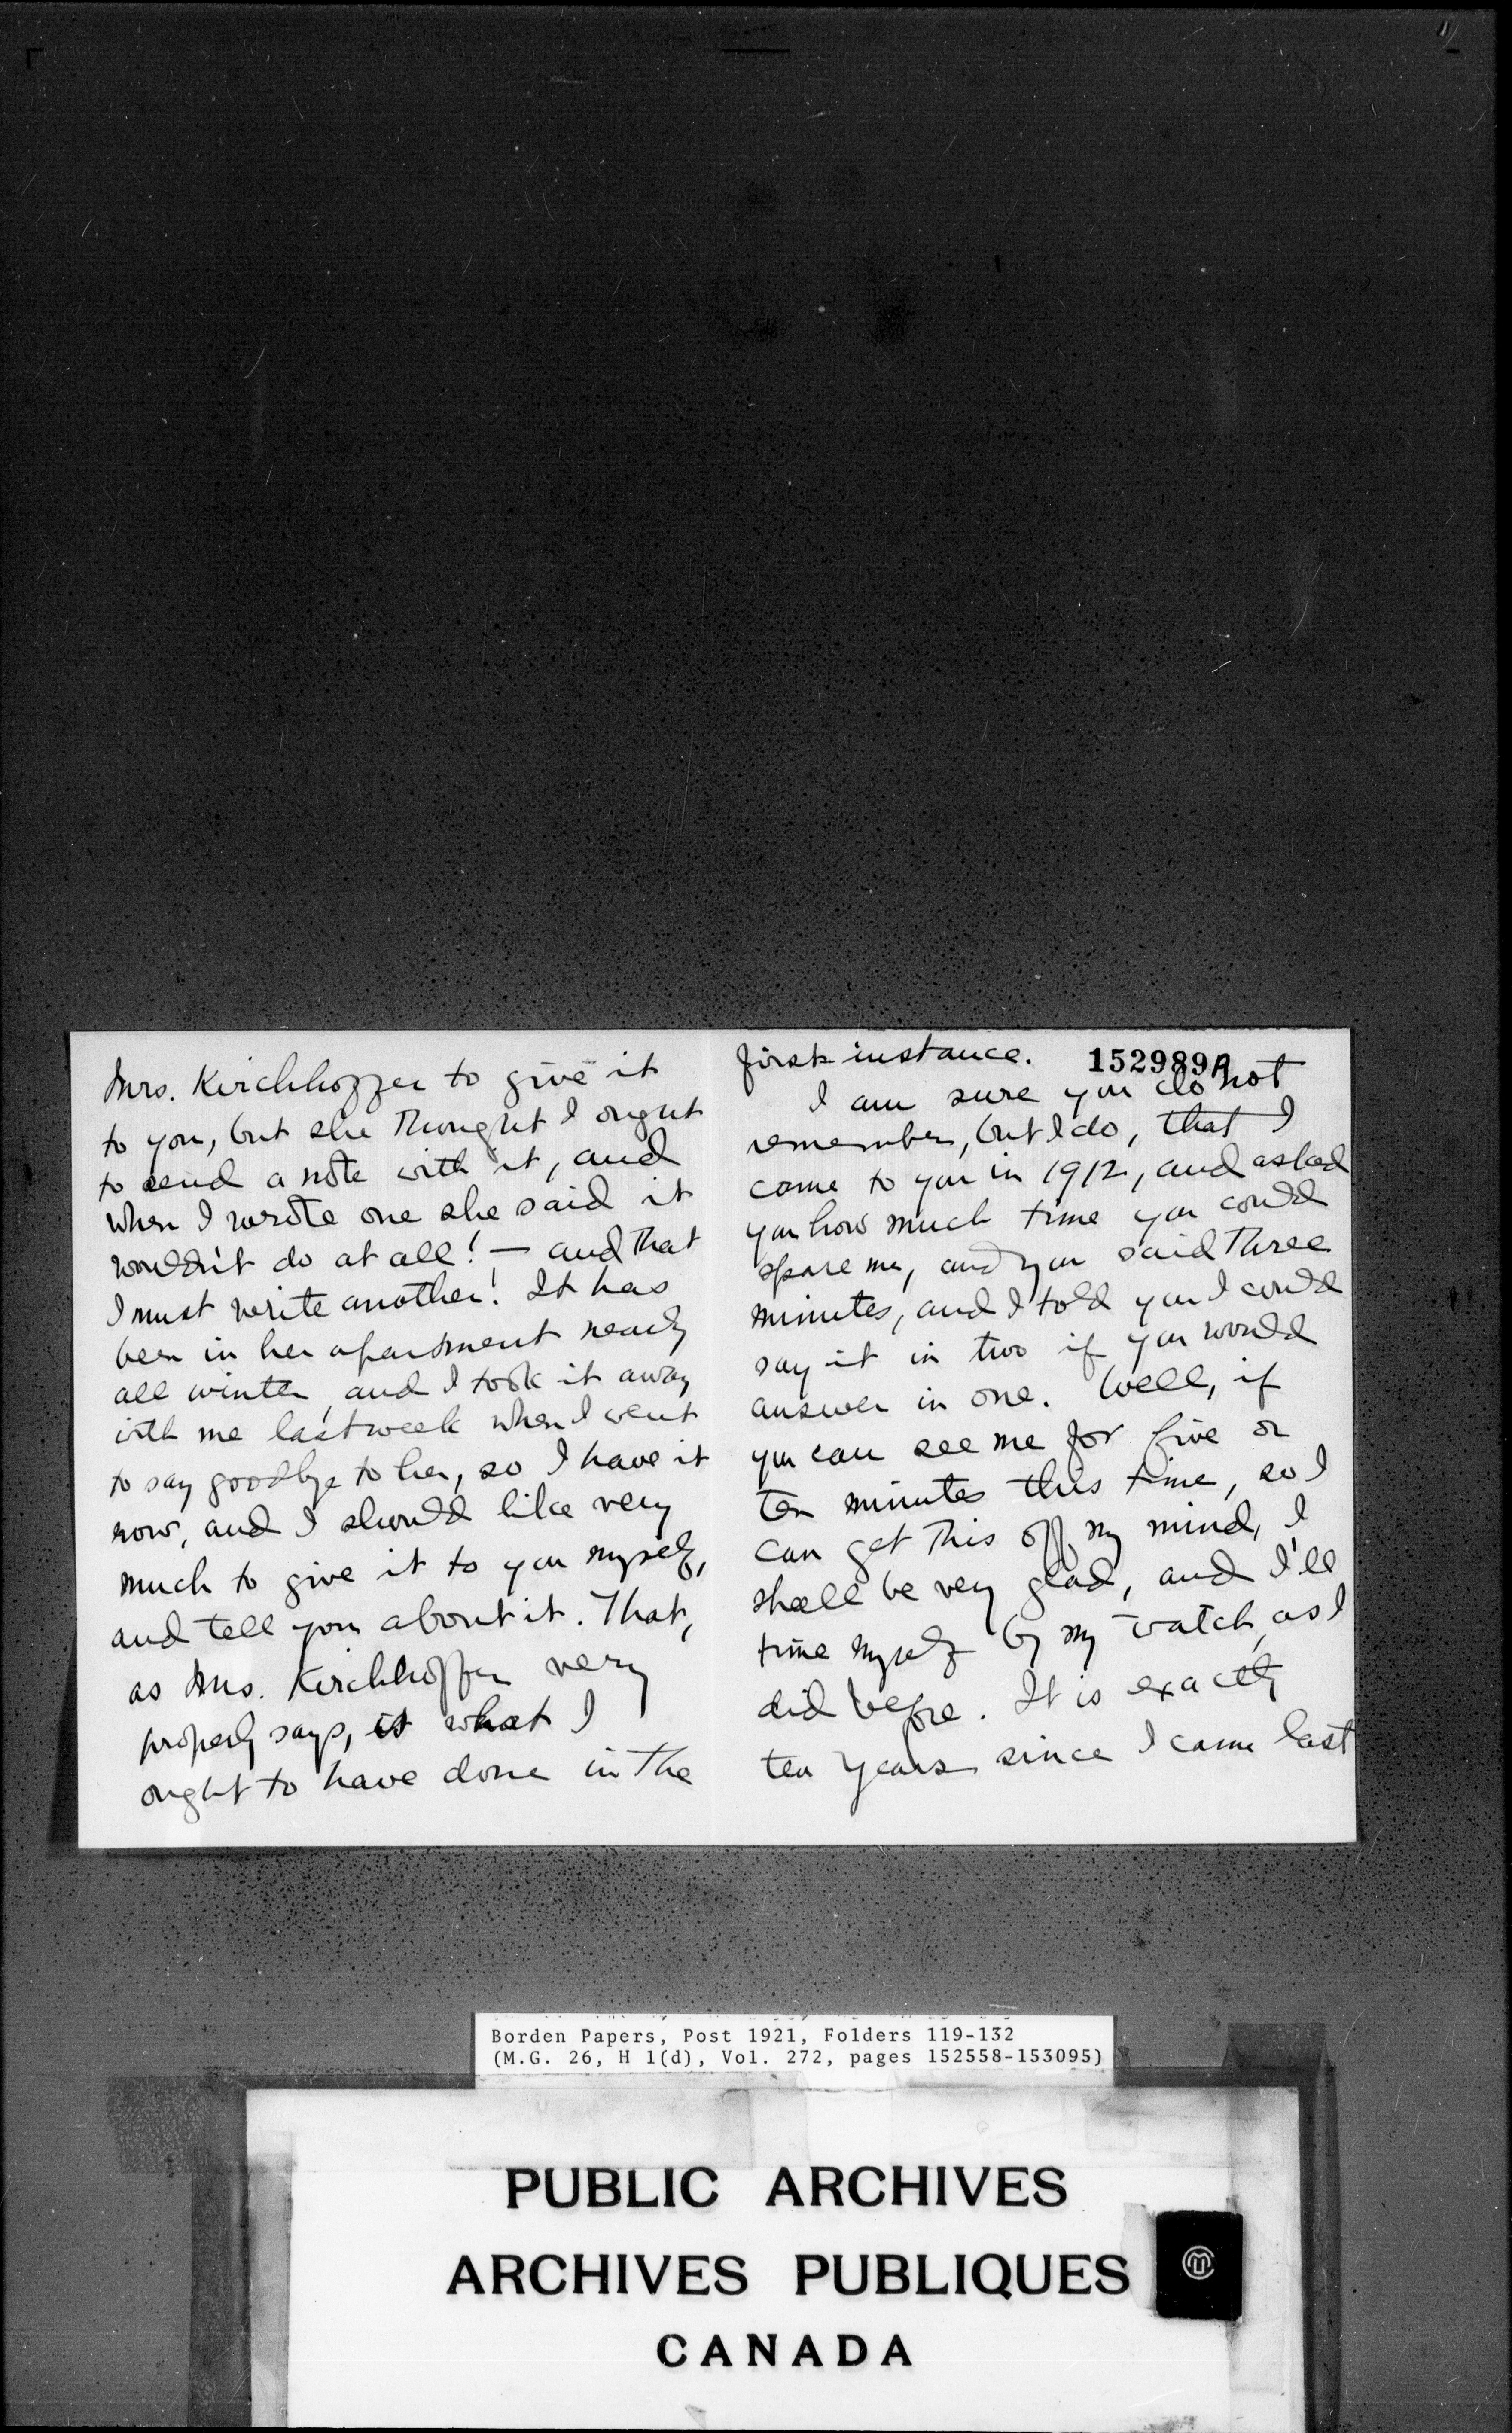 Mrs. Kirchhoffer to give it
to you, but she thought I ought
to send a note with it, and
when I wrote one she said it
wouldn't do at all! — and that
I must write another! It has
been in her apartment nearly
all winter, and I took it away
with me last week when I went
to say goodbye to her, so I have it
now, and I should like very
much to give it to you myself,
and tell you about it. That,
as Mrs. Kirchhoffer very
properly says, is what I
ought to have done in the
first instance.
152989A
I am sure you do not
remember, but I do, that I
came to you in 1912, and asked
you how much time you could
spare me, and you said three
minutes, and I told you I could
say it in two if you would
answer in one. Well, if
you can see me for five or
ten minutes this time, so I
can get this off my mind, I
shall be very glad, and I'll
time myself by my watch, as I
did before. It is exactly
ten years since I came last
Borden Papers, Post 1921, Folders 119-132
(M.G. 26, H 1(d), Vol. 272, pages 152558-153095)
PUBLIC ARCHIVES
ARCHIVES PUBLIQUES
CANADA